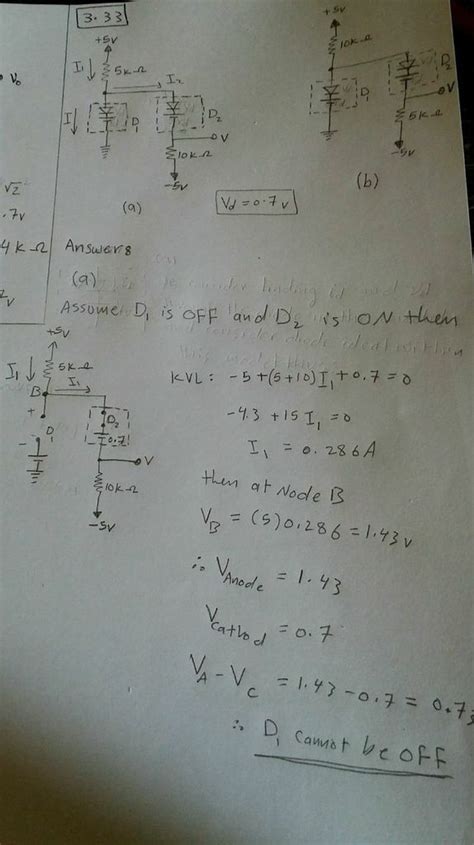 3.33
+5V
I₁
5k-Ω
I₂
I
D₁
D₂
V
10k-Ω
-5V
(a)
+5V
10k-Ω
D₁
D₂
V
5k-Ω
-5V
(b)
Vd = 0.7v
V₀
√2
.7v
4k-Ω
Answer:
(a)
Assume D₁ is OFF and D₂ is ON then
+5V
I₁
5k-Ω
B
I₁
+
D₁
-
D₂
0.7
V
10k-Ω
-5V
KVL: -5+(5+10)I₁+0.7=0
-4.3 +15 I₁ =0
I₁ = 0.286A
then at Node B
V_B = (5)0.286 = 1.43v
∴ V_Anode = 1.43
V_cathod = 0.7
V_A - V_C = 1.43 - 0.7 = 0.73
∴ D₁ cannot be OFF